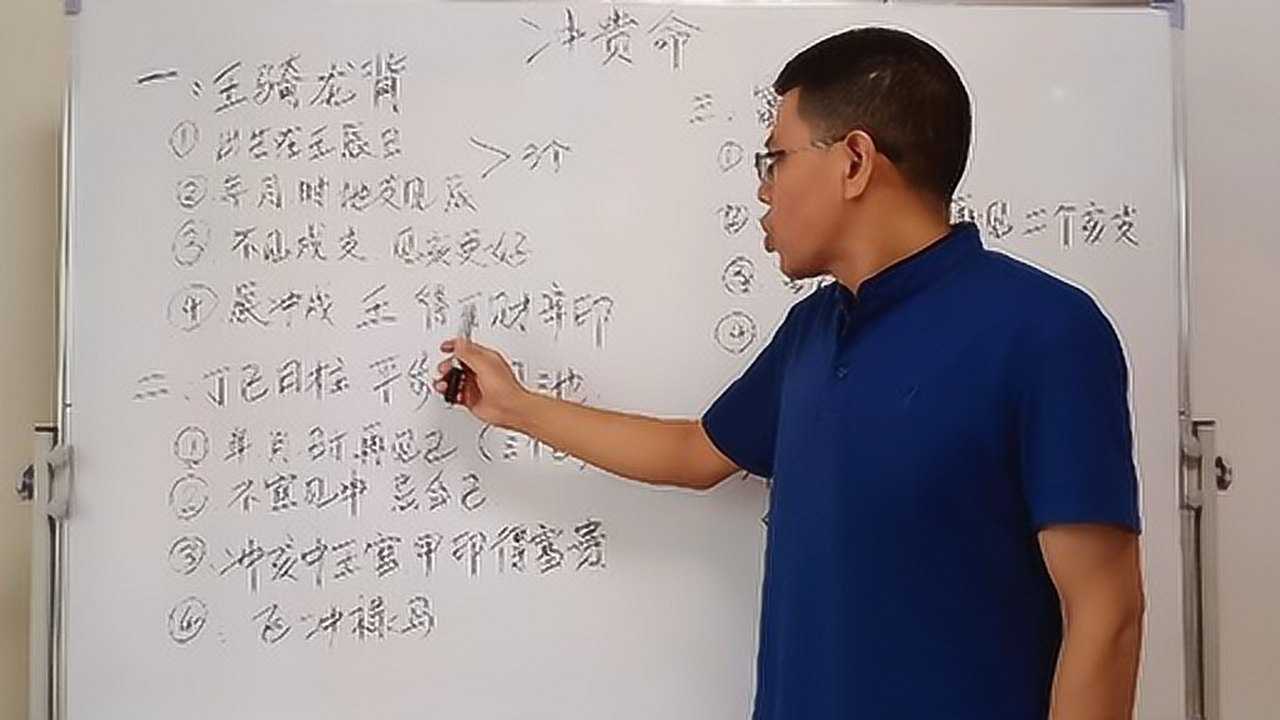 冲贵命
一：壬骑龙背
① 出生在壬辰日
>3个
② 年月时地支见辰
③ 不见戌支 见寅更好
④ 辰冲戌 壬 得丁财辛印
二、丁巳日柱 平步 池
① 年月时再见巳
② 不宜见冲 忌合巳
③ 冲亥中壬官甲印得富贵
④ 飞冲禄马
三、
①
②
再见二个亥支
③
④